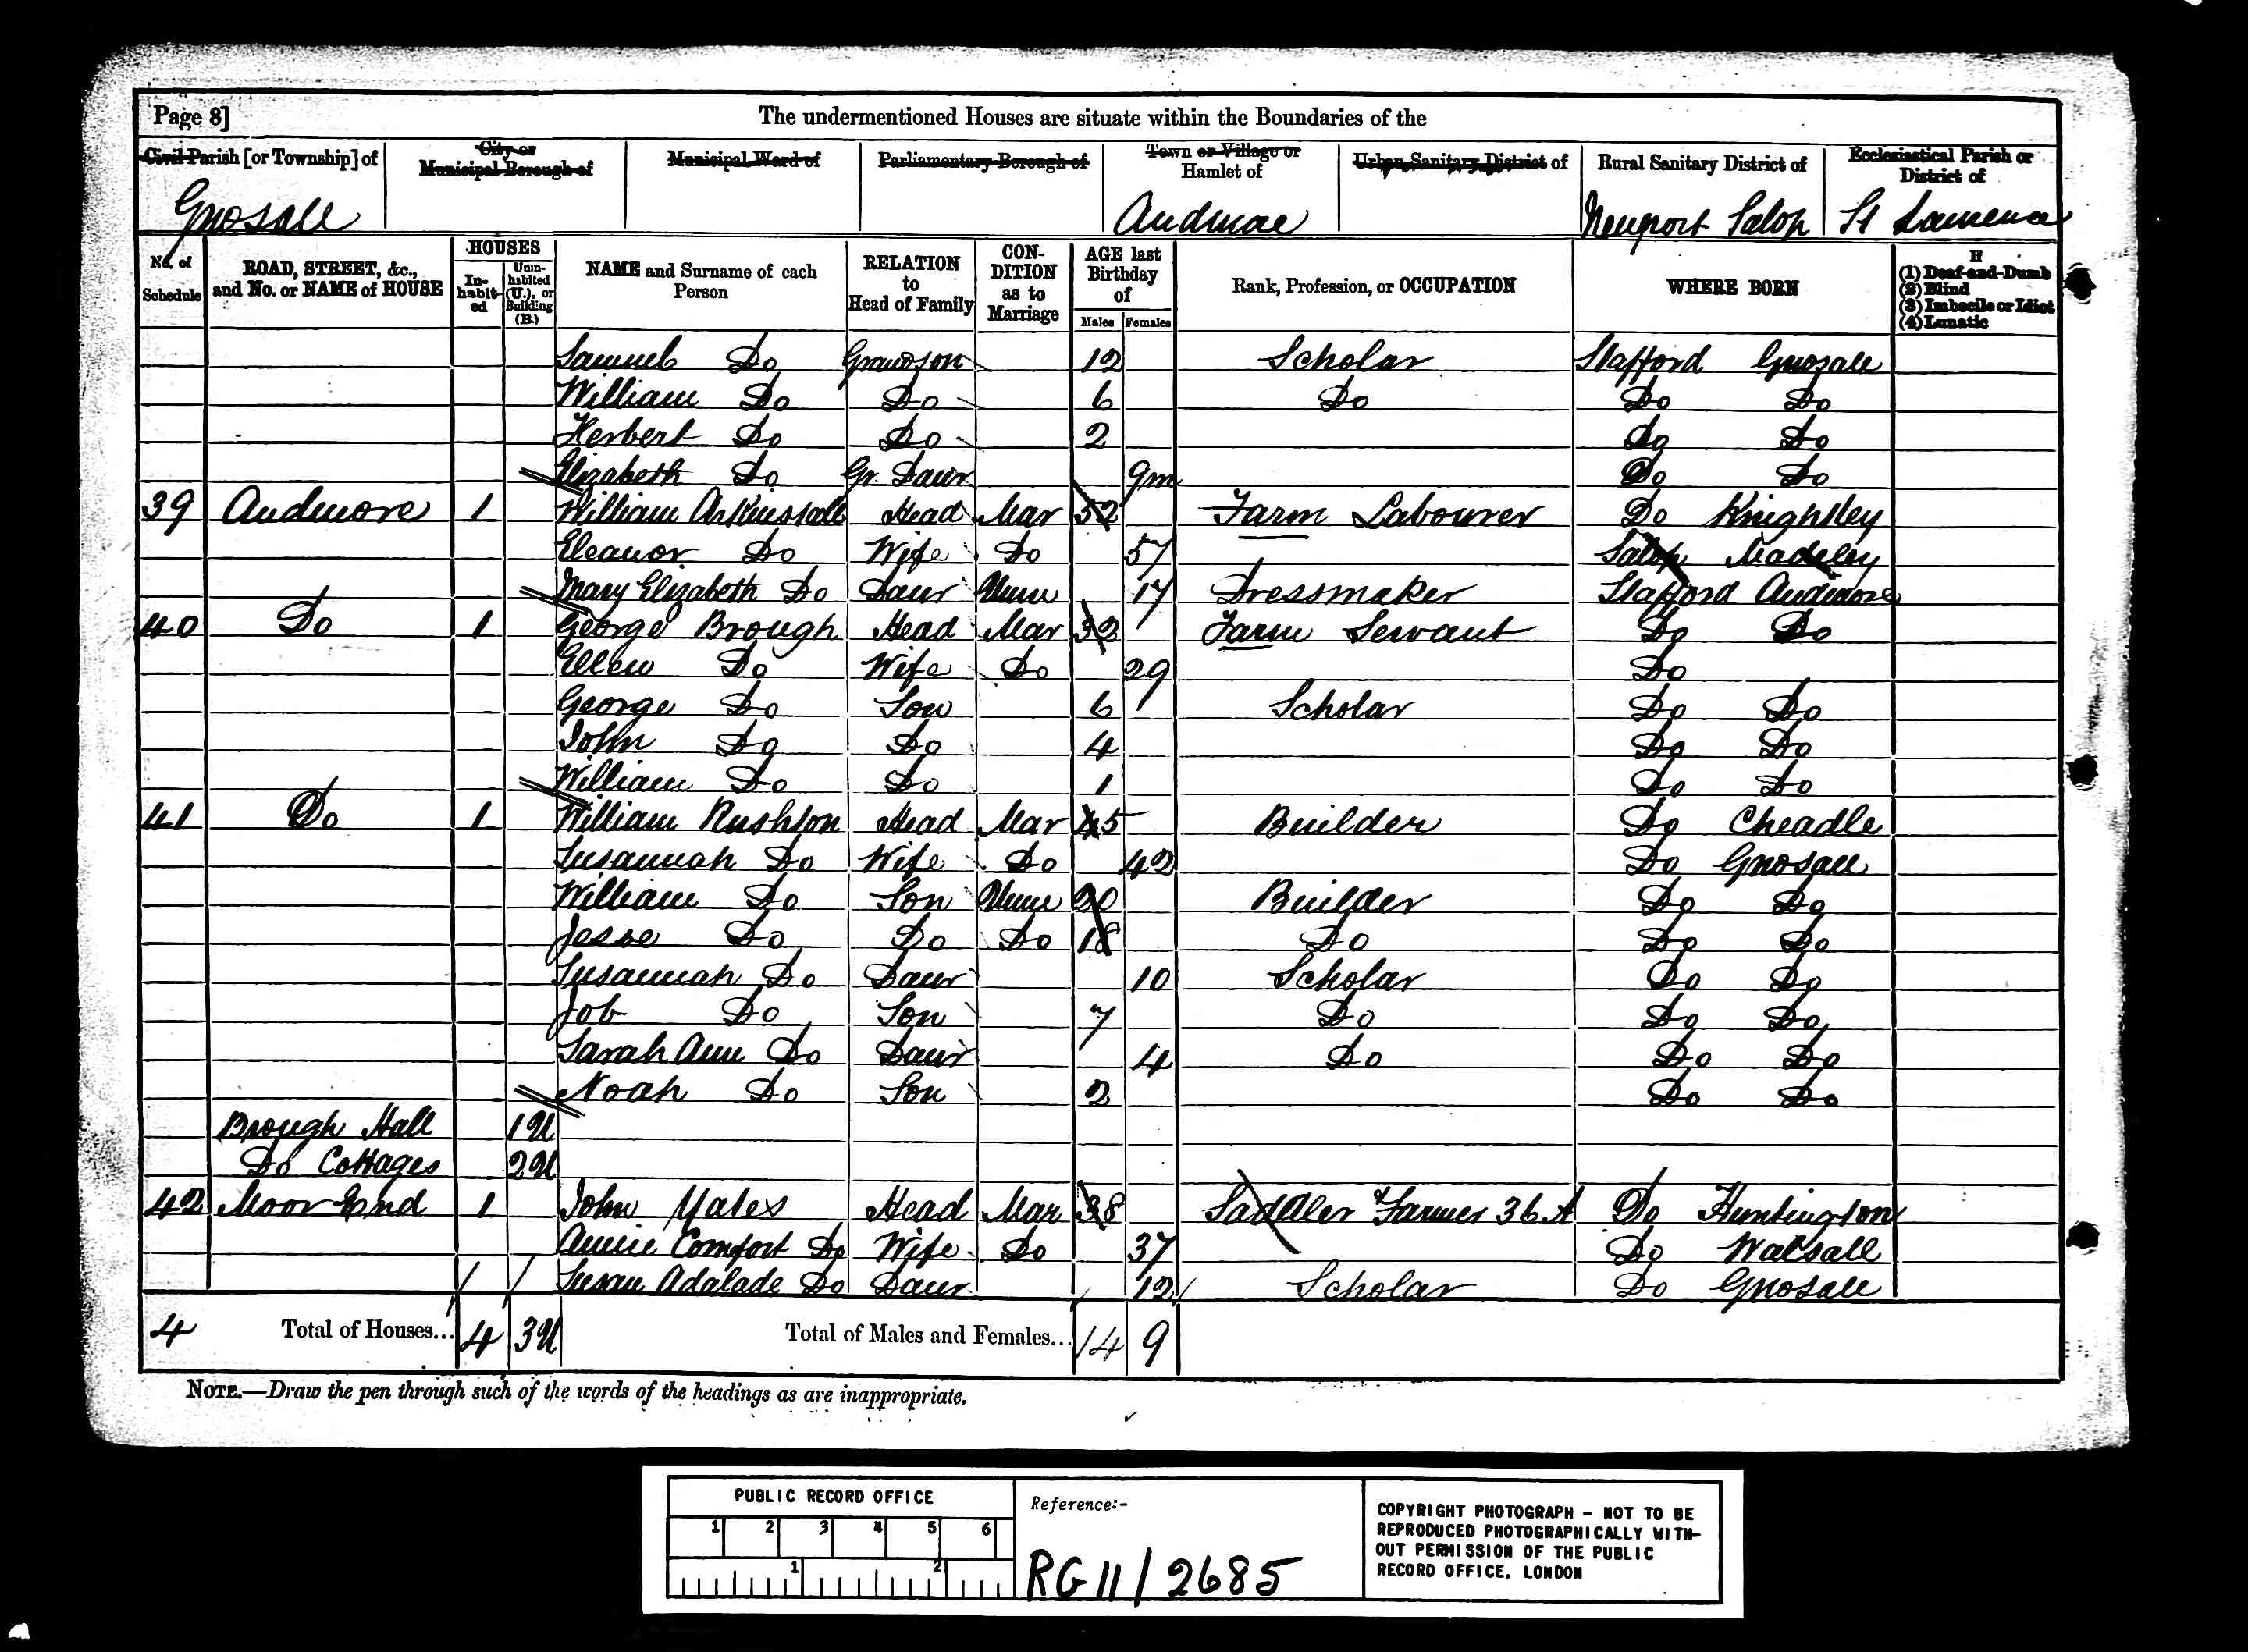 Page 8] The undermentioned Houses are situate within the Boundaries of the
Civil Parish [or Township] of City or Municipal Borough of Municipal Ward of Parliamentary Borough of Town or Village or Hamlet of Urban Sanitary District of Rural Sanitary District of Ecclesiastical Parish or District of
Gnosall Audmore Newport Salop St Lawrence
No. of Schedule ROAD, STREET, &c., and No. or NAME of HOUSE HOUSES Inhabited Uninhabited (U.), or Building (B.) NAME and Surname of each Person RELATION to Head of Family CONDITION as to Marriage AGE last Birthday of Males Females Rank, Profession, or OCCUPATION WHERE BORN If (1) Deaf-and-Dumb (2) Blind (3) Imbecile or Idiot (4) Lunatic
Samuel Do Grandson 12 Scholar Stafford Gnosall
William Do Do 6 Do Do Do
Herbert Do Do 2 Do Do
Elizabeth Do Gr. Daur 9m Do Do
39 Audmore 1 William Arkinstall Head Mar 52 Farm Labourer Do Knightley
Eleanor Do Wife Do 57 Salop Madeley
Mary Elizabeth Do Daur Unm 17 Dressmaker Stafford Audmore
40 Do 1 George Brough Head Mar 32 Farm Servant Do Do
Ellen Do Wife Do 29 Do
George Do Son 6 Scholar Do Do
John Do Do 4 Do Do
William Do Do 1 Do Do
41 Do 1 William Rushton Head Mar 45 Builder Do Cheadle
Susannah Do Wife Do 42 Do Gnosall
William Do Son Unm 20 Builder Do Do
Jesse Do Do Do 18 Do Do Do
Susannah Do Daur 10 Scholar Do Do
Job Do Son 7 Do Do Do
Sarah Ann Do Daur 4 Do Do Do
Noah Do Son 2 Do Do
Brough Hall 1U
Do Cottages 2U
42 Moor End 1 John Yates Head Mar 38 Saddler Farmer 36 A Do Huntington
Annie Comfort Do Wife Do 37 Do Walsall
Susan Adalade Do Daur 12 Scholar Do Gnosall
4 Total of Houses... 4 3U Total of Males and Females... 14 9
NOTE.—Draw the pen through such of the words of the headings as are inappropriate.
PUBLIC RECORD OFFICE
1 2 3 4 5 6
1 2
Reference:-
RG 11 / 2685
COPYRIGHT PHOTOGRAPH - NOT TO BE
REPRODUCED PHOTOGRAPHICALLY WITH-
OUT PERMISSION OF THE PUBLIC
RECORD OFFICE, LONDON